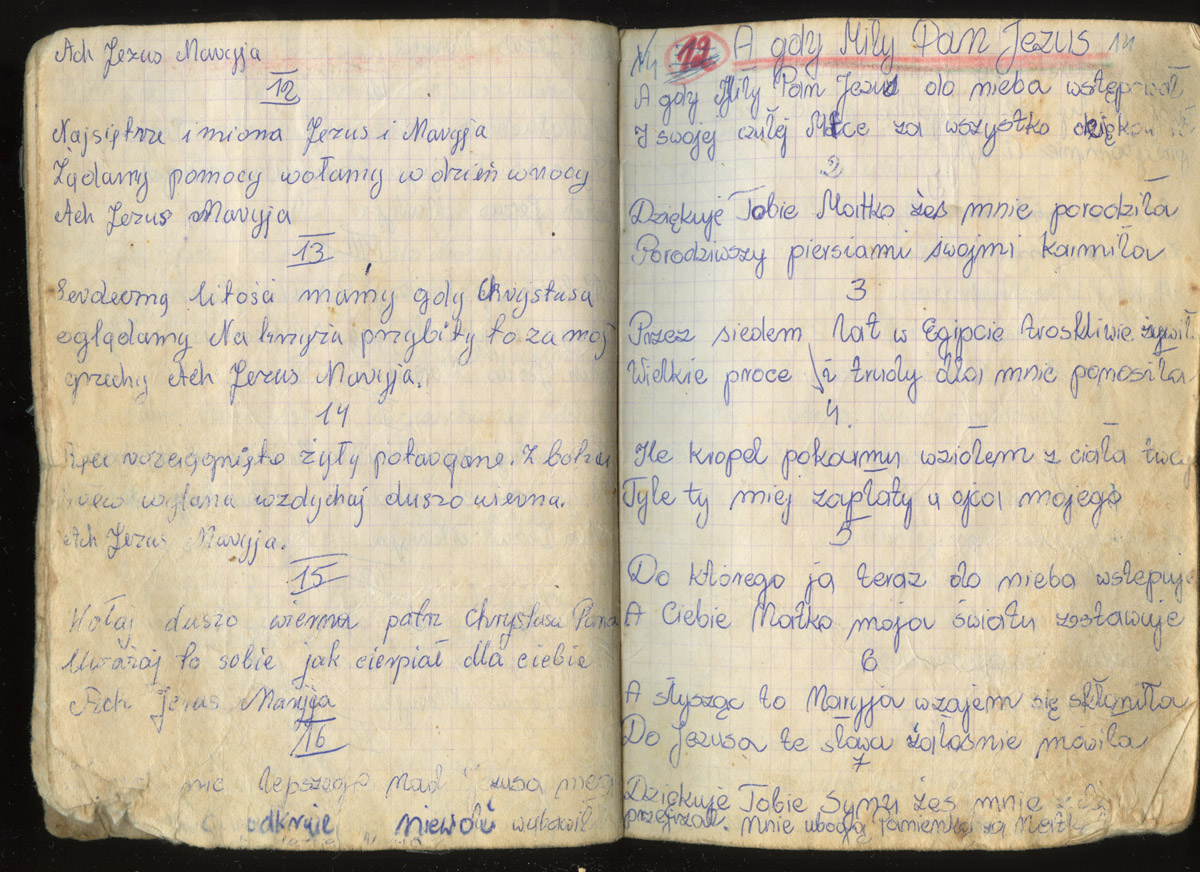 Ach Jezus Maryja
12
Najsiętrze imiona Jezus i Maryja
Żądamy pomocy wołamy w dzień w nocy
Ach Jezus Maryja
13
Serdeczną litość mamy gdy Chrystusa
oglądamy Na krzyża przybity to za moj
grzechy Ach Jezus Maryja.
14
żyły potargane. Z
wylana wzdychaj duszo wierna.
Ach Jezus Maryja.
15
Wołaj duszo wierna patrz Chrystusa Pana
Uważaj to sobie jak cierpiał dla ciebie
Ach Jezus Maryja
16
nic lepszego nad
odkryje niewoli wybawił
12 A gdy Miły Pan Jezus 14
A gdy Miły Pan Jezus do nieba wstępował
I swojej czułej Matce za wszystko
2
Dziękuję Tobie Matko żeś mnie porodziła
Porodziwszy piersiami swojmi karmiła
3
Przez siedem lat w Egipcie troskliwie żywił
Wielkie prace i trudy dla mnie ponosiła
4
Ile kropel pokarmu wziołem z ciała twej
Tyle ty miej zapłaty u ojca mojego
5
Do którego ja teraz do nieba wstępuje
A Ciebie Matko moja światu zostawuje
6
A słysząc to Maryja wzajem się skłoniła
Do Jezusa te słowa żałośnie mówiła
7
Dziękuje Tobie Synu żeś mnie
przejrzał. Mnie ubogą Panienkę za Matkę